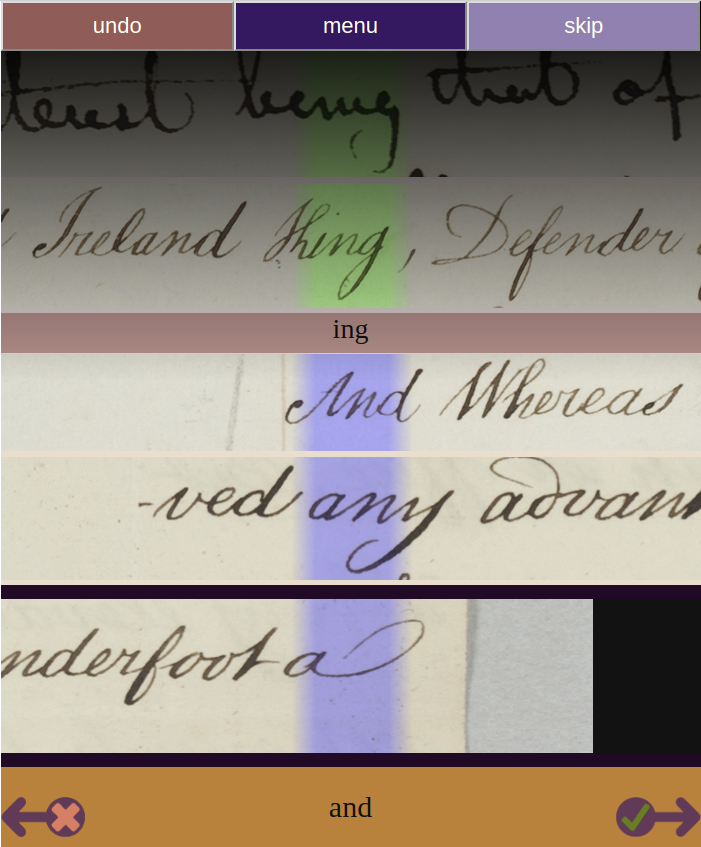 undo menu skip
terest being that of
Ireland King, Defender
ing
And Whereas
-ved any advan
nderfoot a
and